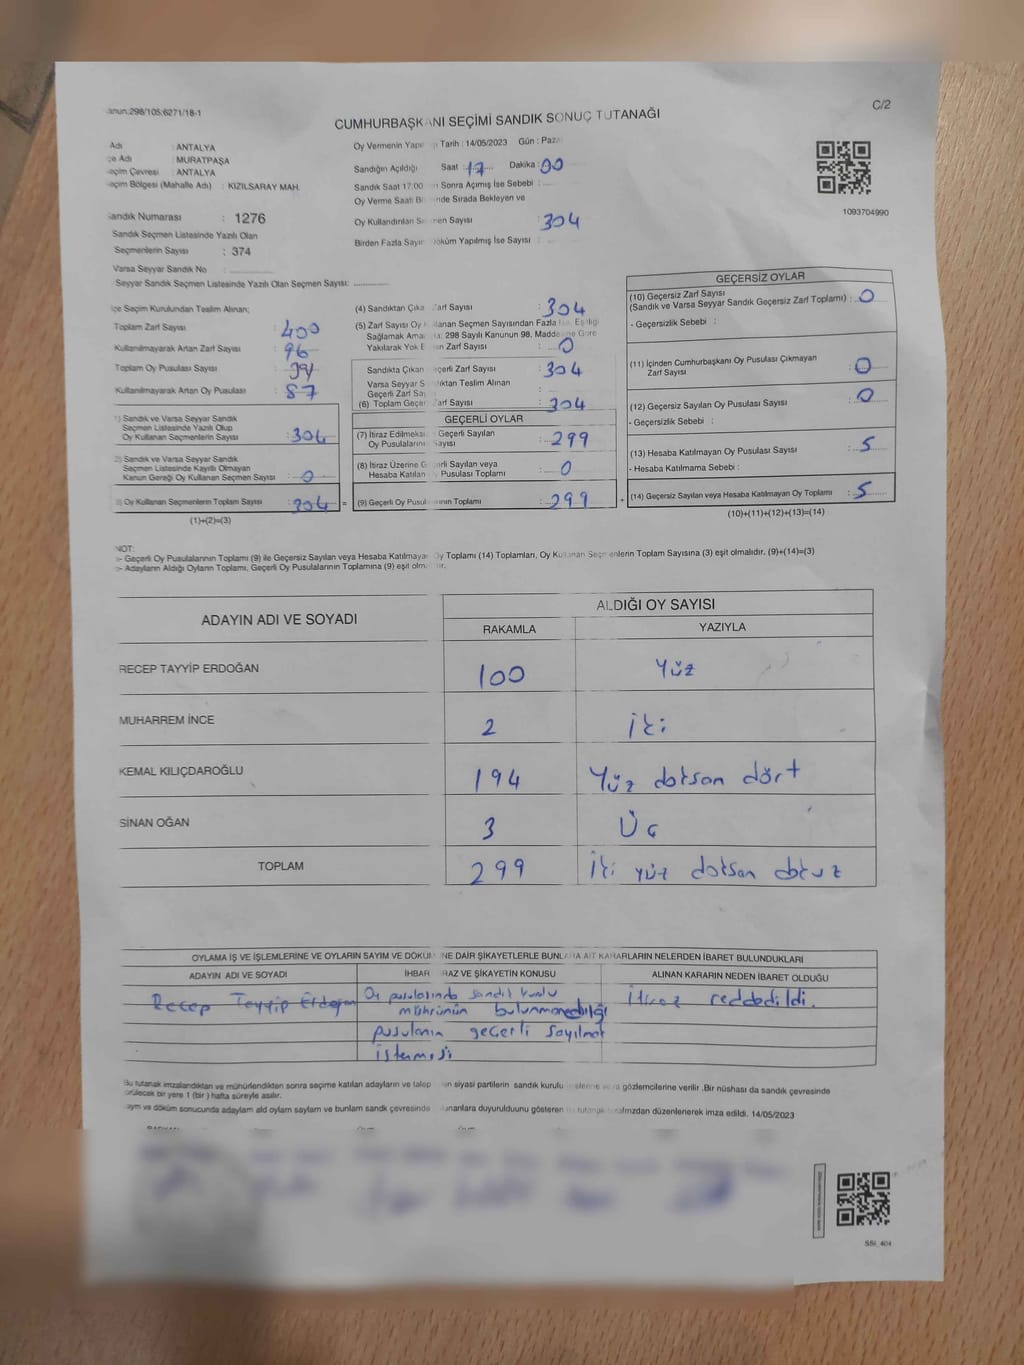 anun.298/105;6271/18-1
C/2
CUMHURBAŞKANI SEÇİMİ SANDIK SONUÇ TUTANAĞI
Adı : ANTALYA
çe Adı : MURATPAŞA
eçim Çevresi : ANTALYA
eçim Bölgesi (Mahalle Adı) : KIZILSARAY MAH.
andık Numarası : 1276
Sandık Seçmen Listesinde Yazılı Olan
Seçmenlerin Sayısı : 374
Varsa Seyyar Sandık No :
Seyyar Sandık Seçmen Listesinde Yazılı Olan Seçmen Sayısı:
Oy Vermenin Yapıl Tarih : 14/05/2023 Gün : Paza
Sandığın Açıldığı Saat : 17 Dakika : 00
Sandık Saat 17:00 n Sonra Açımış İse Sebebi :
Oy Verme Saati Bi inde Sırada Bekleyen ve
Oy Kullandırılan Se men Sayısı : 304
Birden Fazla Sayım Döküm Yapılmış İse Sayısı :
1093704990
çe Seçim Kurulundan Teslim Alınan;
Toplam Zarf Sayısı : 400
Kullanılmayarak Artan Zarf Sayısı : 96
Toplam Oy Pusulası Sayısı :
Kullanılmayarak Artan Oy Pusulası : 87
1) Sandık ve Varsa Seyyar Sandık
Seçmen Listesinde Yazılı Olup
Oy Kullanan Seçmenlerin Sayısı : 304
2) Sandık ve Varsa Seyyar Sandık
Seçmen Listesinde Kayıtlı Olmayan
Kanun Gereği Oy Kullanan Seçmen Sayısı : 0
3) Oy Kullanan Seçmenlerin Toplam Sayısı : 304 =
(1)+(2)=(3)
(4) Sandıktan Çıka Zarf Sayısı : 304
(5) Zarf Sayısı Oy K llanan Seçmen Sayısından Fazla İse, Eşitliği
Sağlamak Ama la; 298 Sayılı Kanunun 98. Maddesine Göre
Yakılarak Yok E en Zarf Sayısı : 0
Sandıkta Çıkan eçerli Zarf Sayısı : 304
Varsa Seyyar S dıktan Teslim Alınan
Geçerli Zarf Say :
(6) Toplam Geçe Zarf Sayısı : 304
GEÇERLİ OYLAR
(7) İtiraz Edilmeksi Geçerli Sayılan
Oy Pusulaların ayısı : 299
(8) İtiraz Üzerine G erli Sayılan veya
Hesaba Katılan Pusulası Toplamı : 0
(9) Geçerli Oy Pusul rının Toplamı : 299 +
GEÇERSİZ OYLAR
(10) Geçersiz Zarf Sayısı
(Sandık ve Varsa Seyyar Sandık Geçersiz Zarf Toplamı) : 0
- Geçersizlik Sebebi :
(11) İçinden Cumhurbaşkanı Oy Pusulası Çıkmayan
Zarf Sayısı : 0
(12) Geçersiz Sayılan Oy Pusulası Sayısı : 0
- Geçersizlik Sebebi :
(13) Hesaba Katılmayan Oy Pusulası Sayısı : 5
- Hesaba Katılmama Sebebi :
(14) Geçersiz Sayılan veya Hesaba Katılmayan Oy Toplamı : 5
(10)+(11)+(12)+(13)=(14)
NOT:
- Geçerli Oy Pusulalarının Toplamı (9) ile Geçersiz Sayılan veya Hesaba Katılmayan Oy Toplamı (14) Toplamları, Oy Kullanan Seçmenlerin Toplam Sayısına (3) eşit olmalıdır. (9)+(14)=(3)
- Adayların Aldığı Oyların Toplamı, Geçerli Oy Pusulalarının Toplamına (9) eşit olmalıdır.
ADAYIN ADI VE SOYADI
ALDIĞI OY SAYISI
RAKAMLA YAZIYLA
RECEP TAYYİP ERDOĞAN 100 Yüz
MUHARREM İNCE 2 İki
KEMAL KILIÇDAROĞLU 194 Yüz doksan dört
SİNAN OĞAN 3 Üç
TOPLAM 299 İki yüz doksan dokuz
OYLAMA İŞ VE İŞLEMLERİNE VE OYLARIN SAYIM VE DÖKÜM NE DAİR ŞİKAYETLERLE BUNLARA AİT KARARLARIN NELERDEN İBARET BULUNDUKLARI
ADAYIN ADI VE SOYADI İHBAR RAZ VE ŞİKAYETİN KONUSU ALINAN KARARIN NEDEN İBARET OLDUĞU
Recep Tayyip Erdoğan Oy pusulasında sandık kurulu İtiraz reddedildi.
mührünün bulunmamadığı
pusulanın geçerli sayılması
istemesi
Bu tutanak imzalandıktan ve mühürlendikten sonra seçime katılan adayların ve talep en siyasi partilerin sandık kurulu gözlemcilerine verilir .Bir nüshası da sandık çevresinde
örülecek bir yere 1 (bir ) hafta süreyle asılır.
ayım ve döküm sonucunda adayların ald oyların sayıları ve bunların sandık çevresinde unanlara duyurulduunu gösteren tutanak tarafımızdan düzenlenerek imza edildi. 14/05/2023
SSI_404